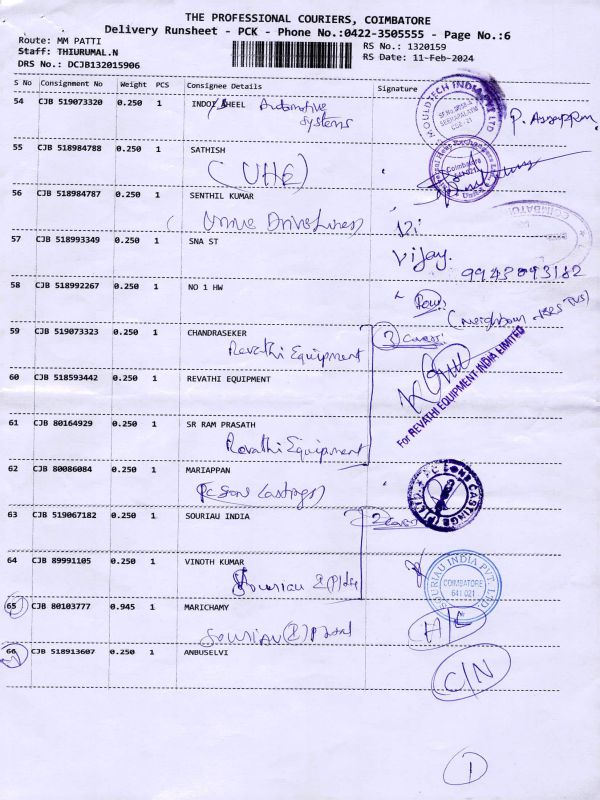 THE PROFESSIONAL COURIERS, COIMBATORE
Delivery Runsheet - PCK - Phone No.:0422-3505555 - Page No.:6
Route: MM PATTI
RS No.: 1320159
Staff: THIRUMAL.N
RS Date: 11-Feb-2024
DRS No.: DCJB132015906
S No Consignment No Weight PCS Consignee Details Signature
54 CJB 519073320 0.250 1 INDO SHEEL Automotive
Systems
MOULDTECH INDIA PVT LTD
55 CJB 518984788 0.250 1 SATHISH
(UHE)
Coimbatore
56 CJB 518984787 0.250 1 SENTHIL KUMAR
COIMBATORE
57 CJB 518993349 0.250 1 SNA ST
Vijay.
58 CJB 518992267 0.250 1 NO 1 HW
59 CJB 519073323 0.250 1 CHANDRASEKER
Revathi Equipment
60 CJB 518593442 0.250 1 REVATHI EQUIPMENT
For REVATHI EQUIPMENT INDIA LIMITED
61 CJB 80164929 0.250 1 SR RAM PRASATH
Revathi Equipment
62 CJB 80086084 0.250 1 MARIAPPAN
63 CJB 519067182 0.250 1 SOURIAU INDIA
64 CJB 89991105 0.250 1 VINOTH KUMAR
Souriau
SOURIAU INDIA PVT. LTD.
COIMBATORE
641 021
65 CJB 80103777 0.945 1 MARICHAMY
66 CJB 518913607 0.250 1 ANBUSELVI
C/N
1